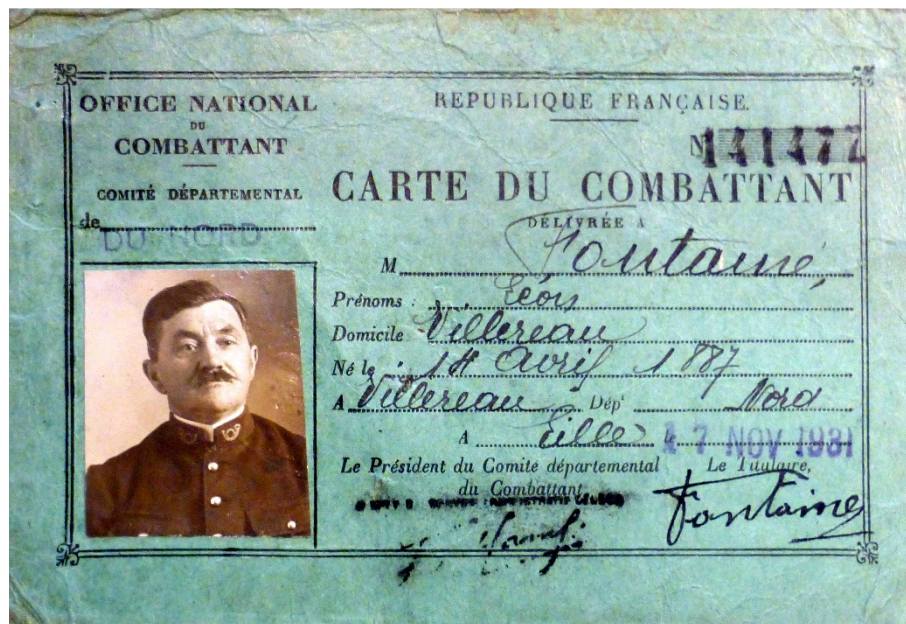 OFFICE NATIONAL
DU
COMBATTANT
COMITÉ DÉPARTEMENTAL
de DU NORD
REPUBLIQUE FRANÇAISE.
N 141477
CARTE DU COMBATTANT
DÉLIVRÉE A
M Fontaine
Prénoms : Léon
Domicile Villereau
Né le 14 Avril 1887
A Villereau Dépt Nord
A Lille le 17 NOV 1931
Le Président du Comité départemental
du Combattant
Le Titulaire,
Fontaine